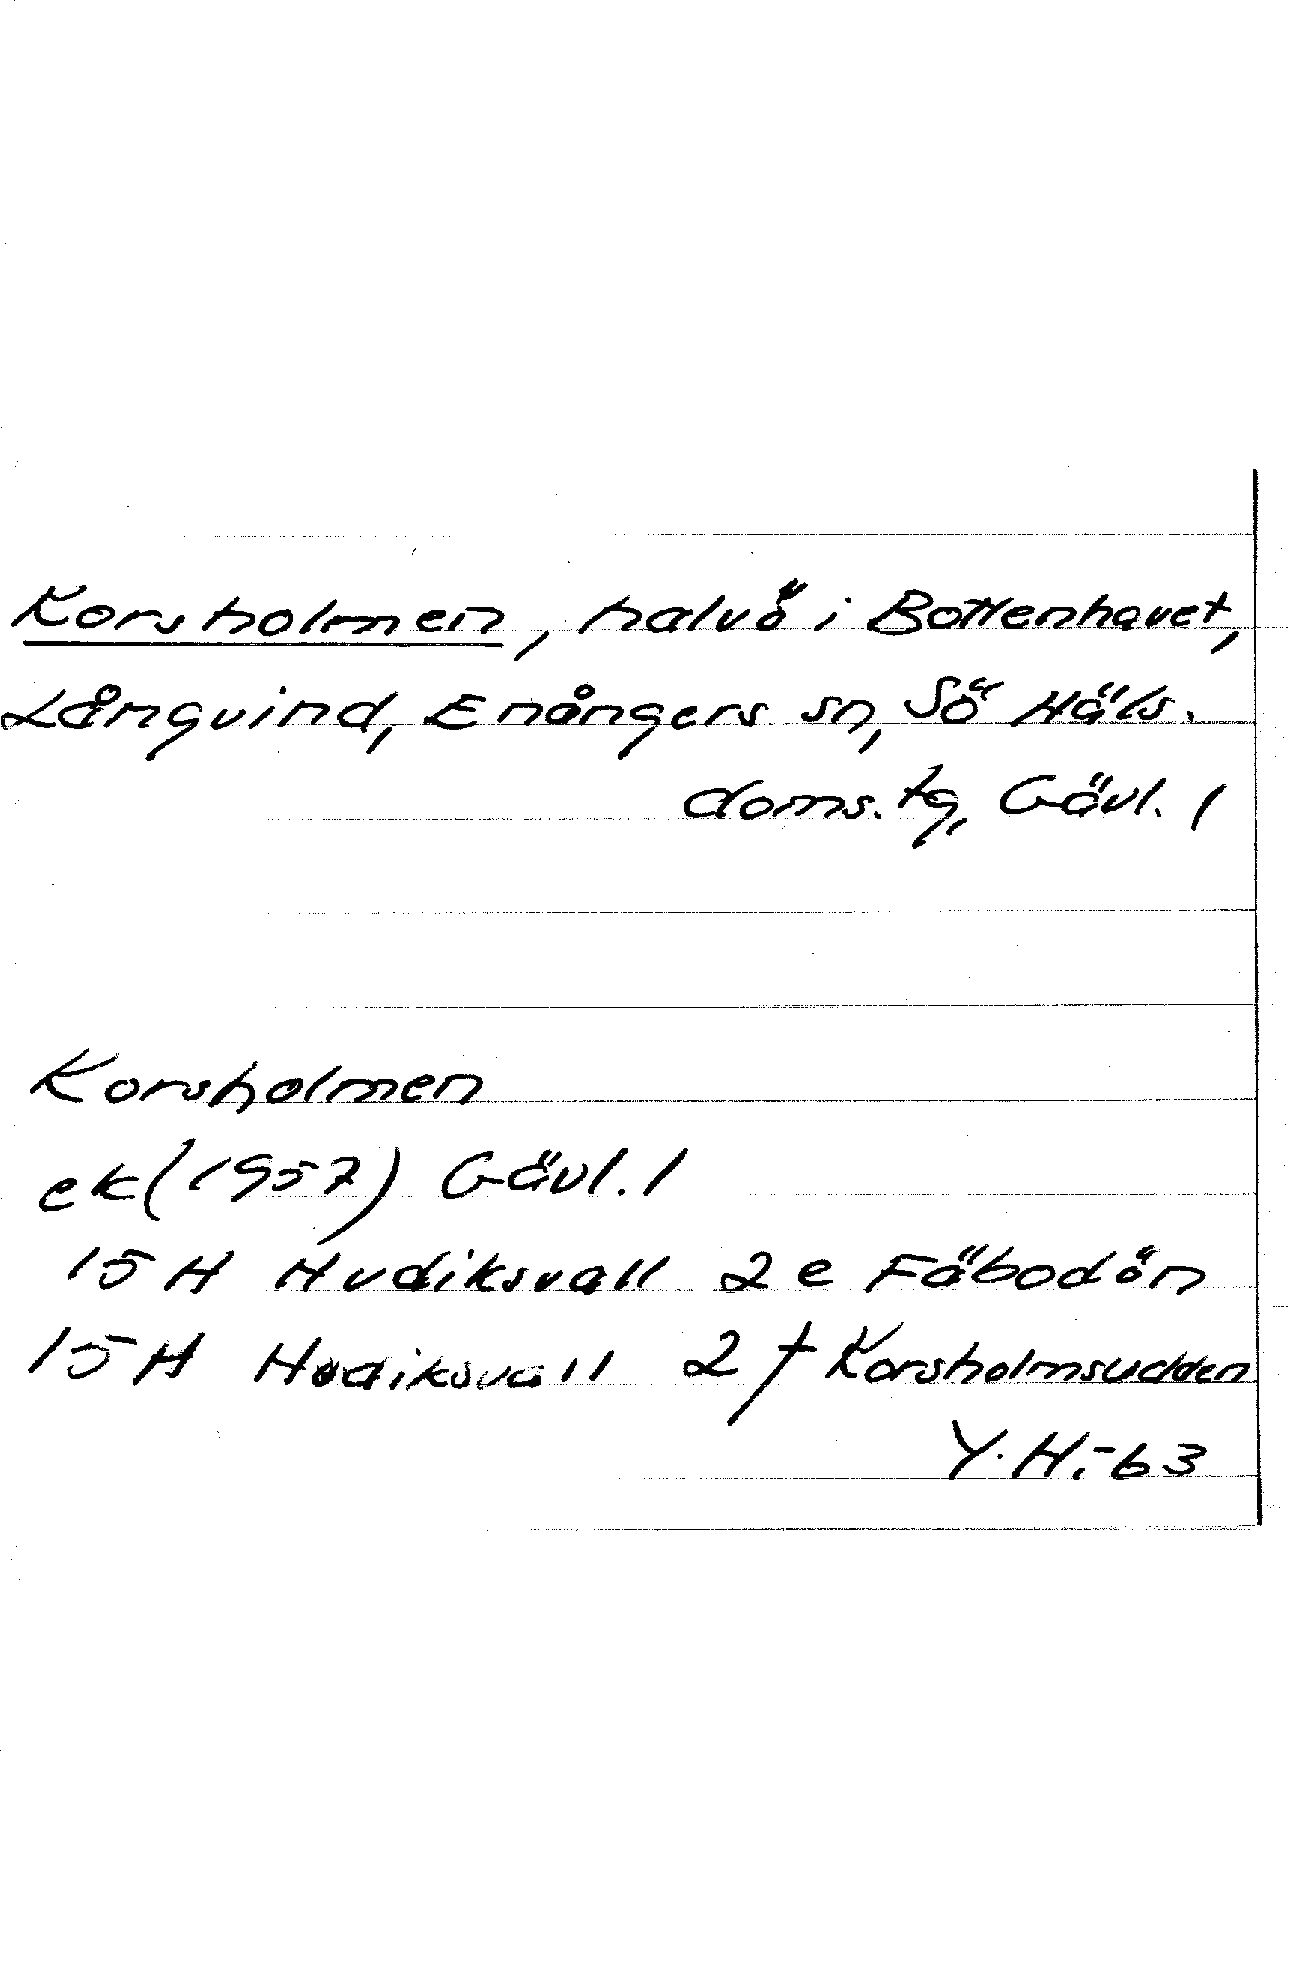 Korsholmen, halvö i Bottenhavet,
Långvind, Enångers sn, Sö Häls.
doms. tg, Gävl. l
Korsholmen
ek (1957) Gävl. l
15 H Hudiksvall 2 e Fäbodön
15 H Hudiksvall 2 f Korsholmsudden
Y. H. -63